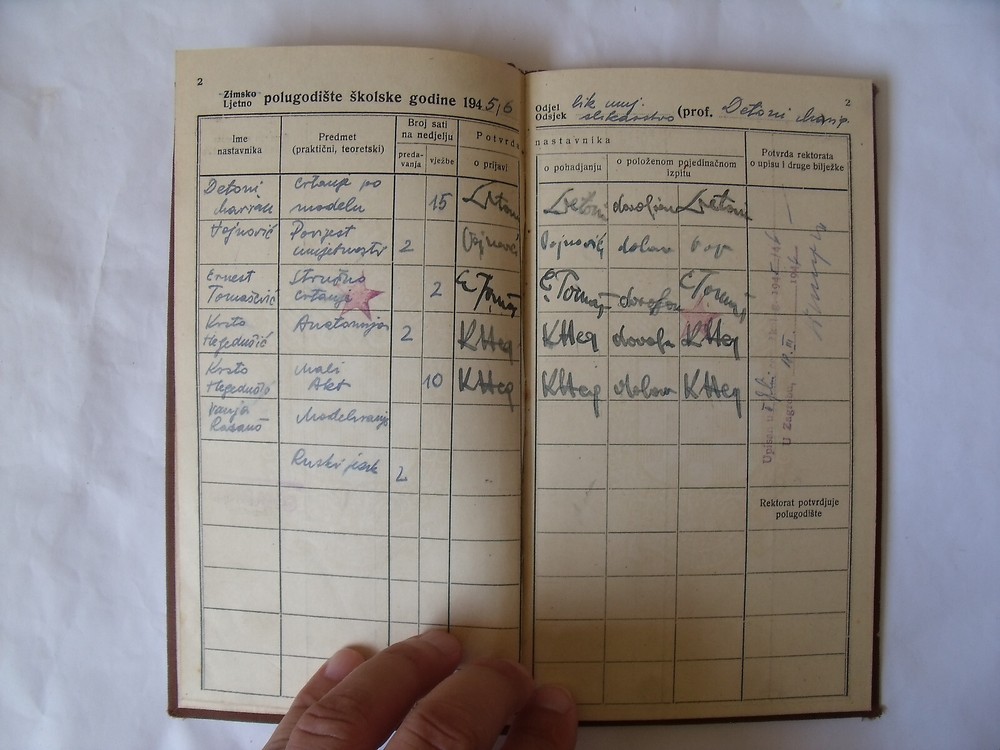 2
Zimsko
Ljetno polugodište školske godine 1945/6
Ime
nastavnika
Predmet
(praktični, teoretski)
Broj sati
na nedjelju
preda-
vanja
vježbe
Potvrda
o prijavi
Detoni
Marijan
Crtanje po
modelu
15
Detoni
Vojnović
Povijest
umjetnosti
2
Vojnović
Ernest
Tomašević
Stručno
crtanje
2
Krsto
Hegedušić
Anatomija
2
KHeg
Krsto
Hegedušić
Mali
Akt
10
KHeg
Vanja
Radauš
Modeliranje
Ruski jezik
2
2
Odjel lik umj.
Odsjek slikarstvo (prof. Detoni Marijan
nastavnika
o pohađanju
o položenom pojedinačnom
izpitu
Potvrda rektorata
o upisu i druge bilježke
Detoni dovoljan Detoni
Vojnović dobar
dovoljan
KHeg dovoljan KHeg
KHeg dobar KHeg
U Zagrebu,
Rektorat potvrdjuje
polugodište